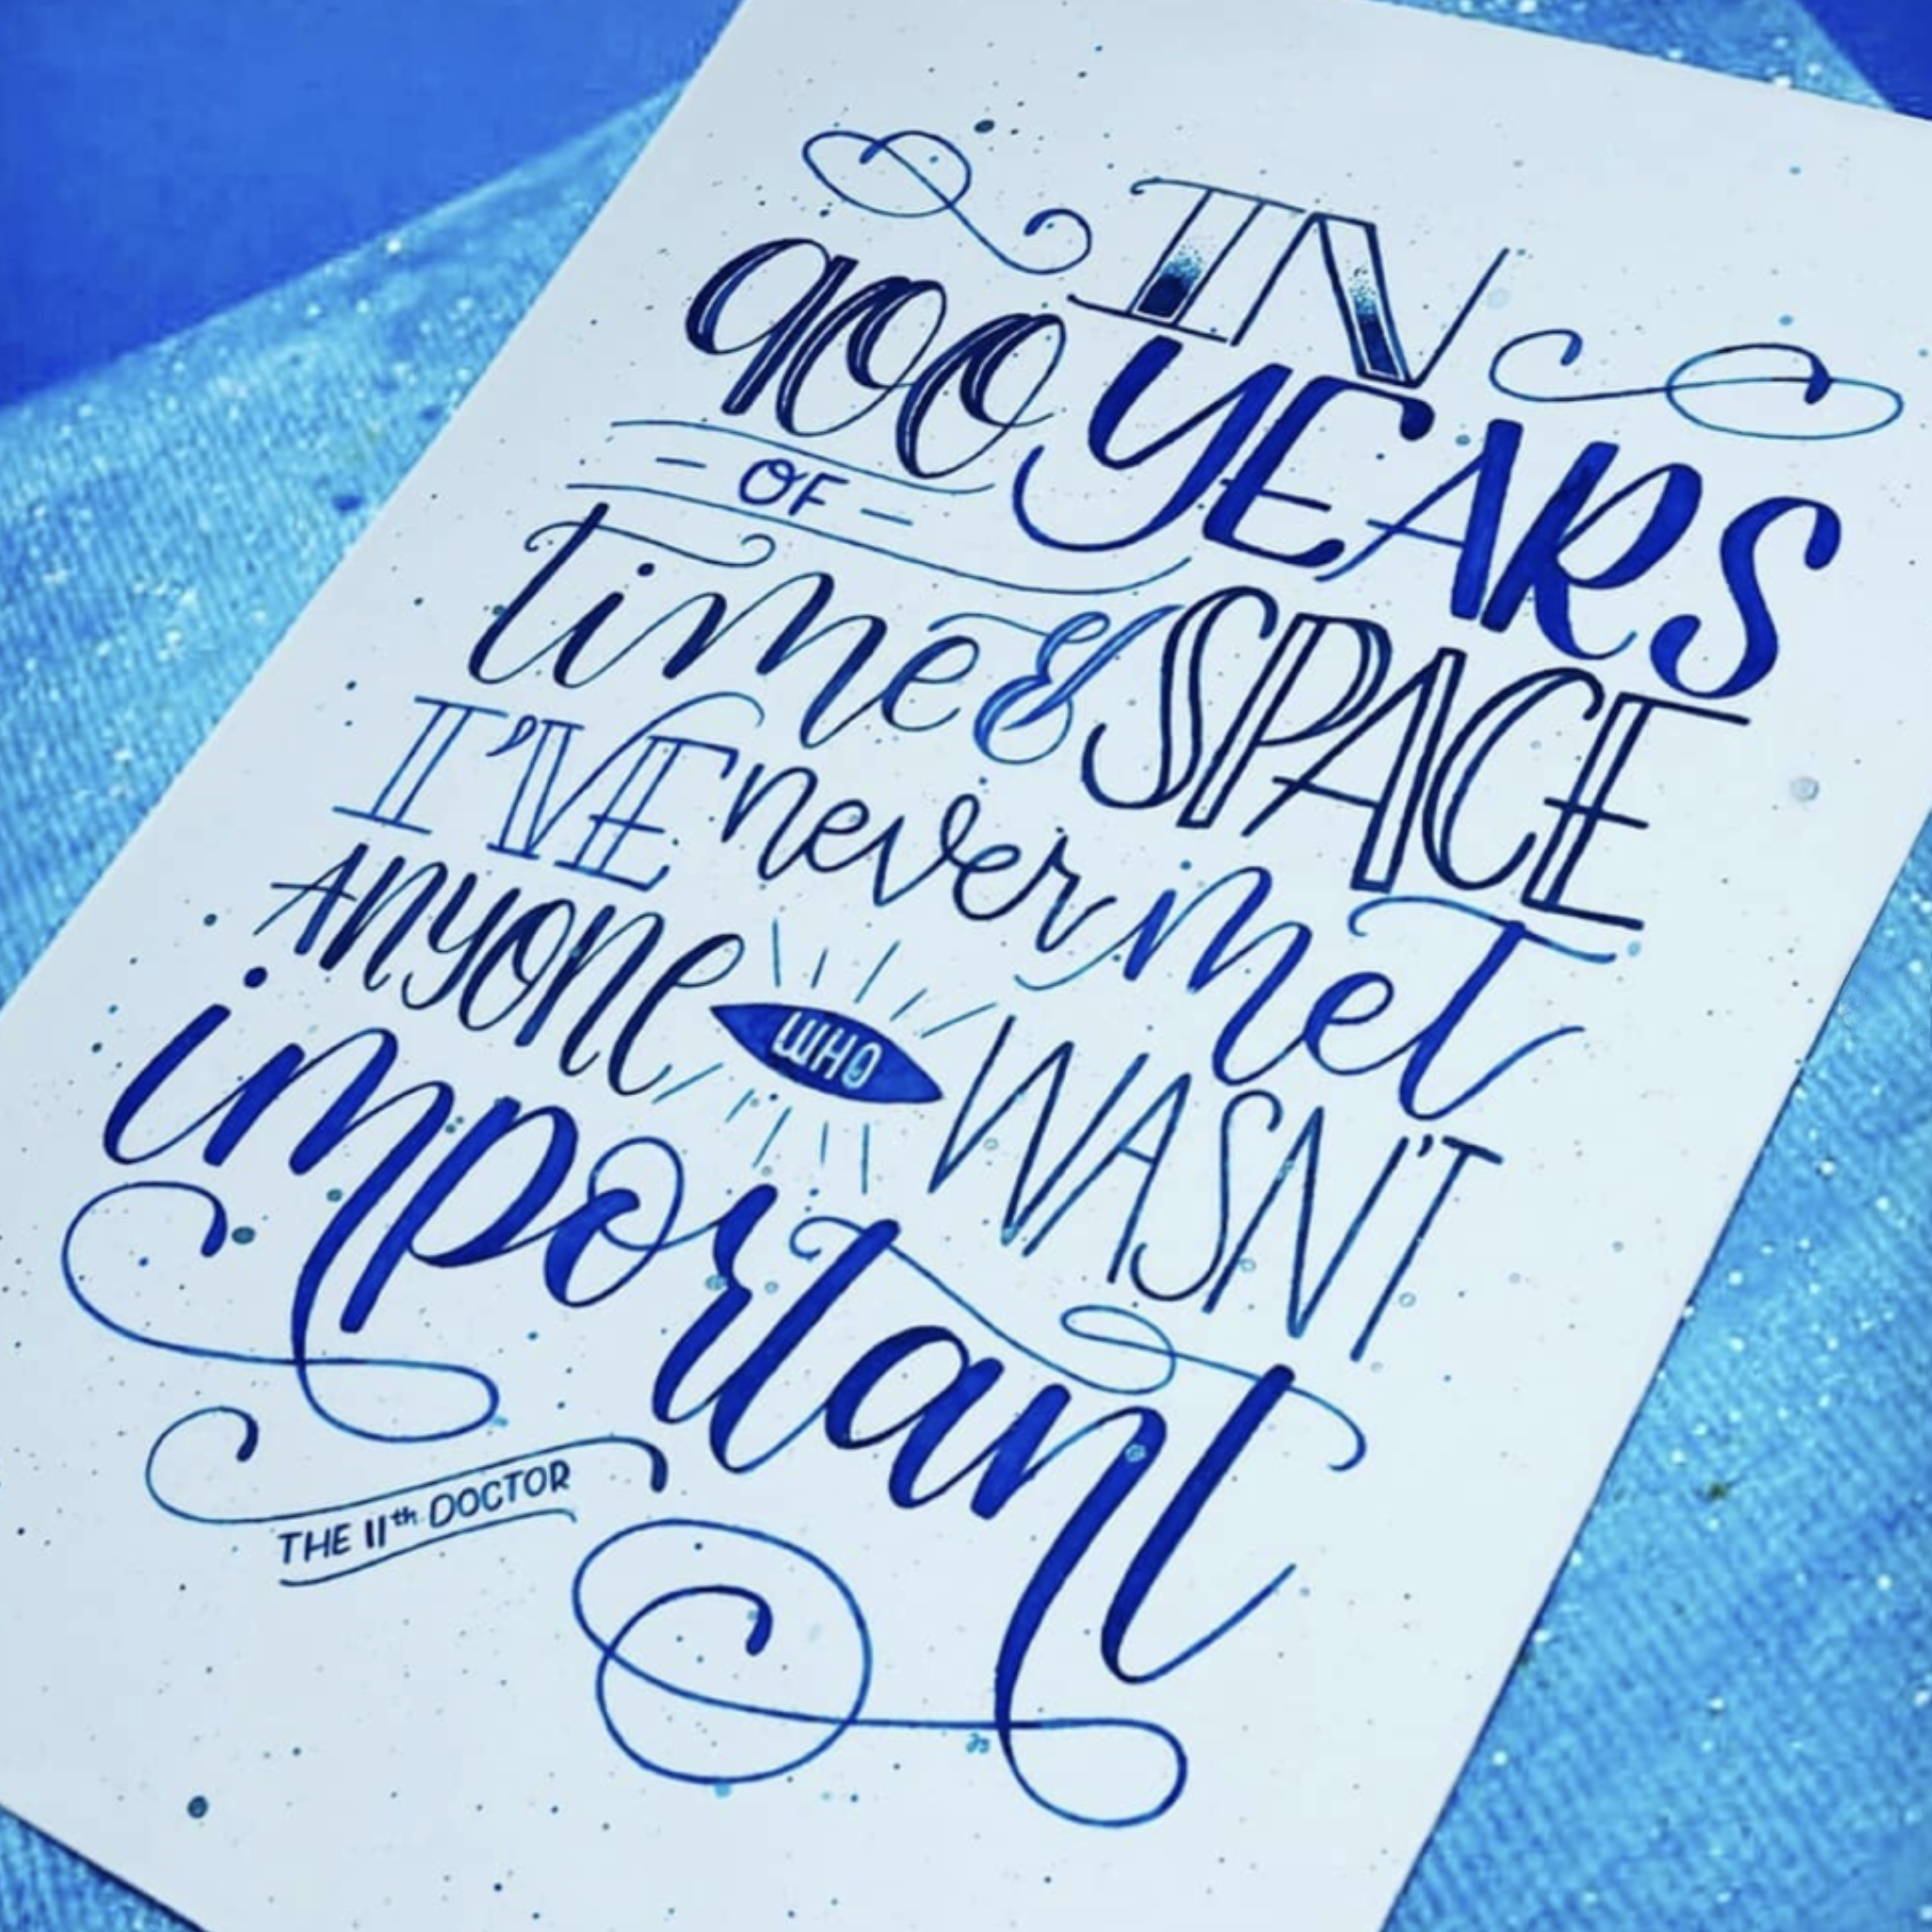 IN
900 YEARS
- OF -
time & SPACE
I'VE never met
ANYONE WHO WASN'T
important
THE 11th DOCTOR